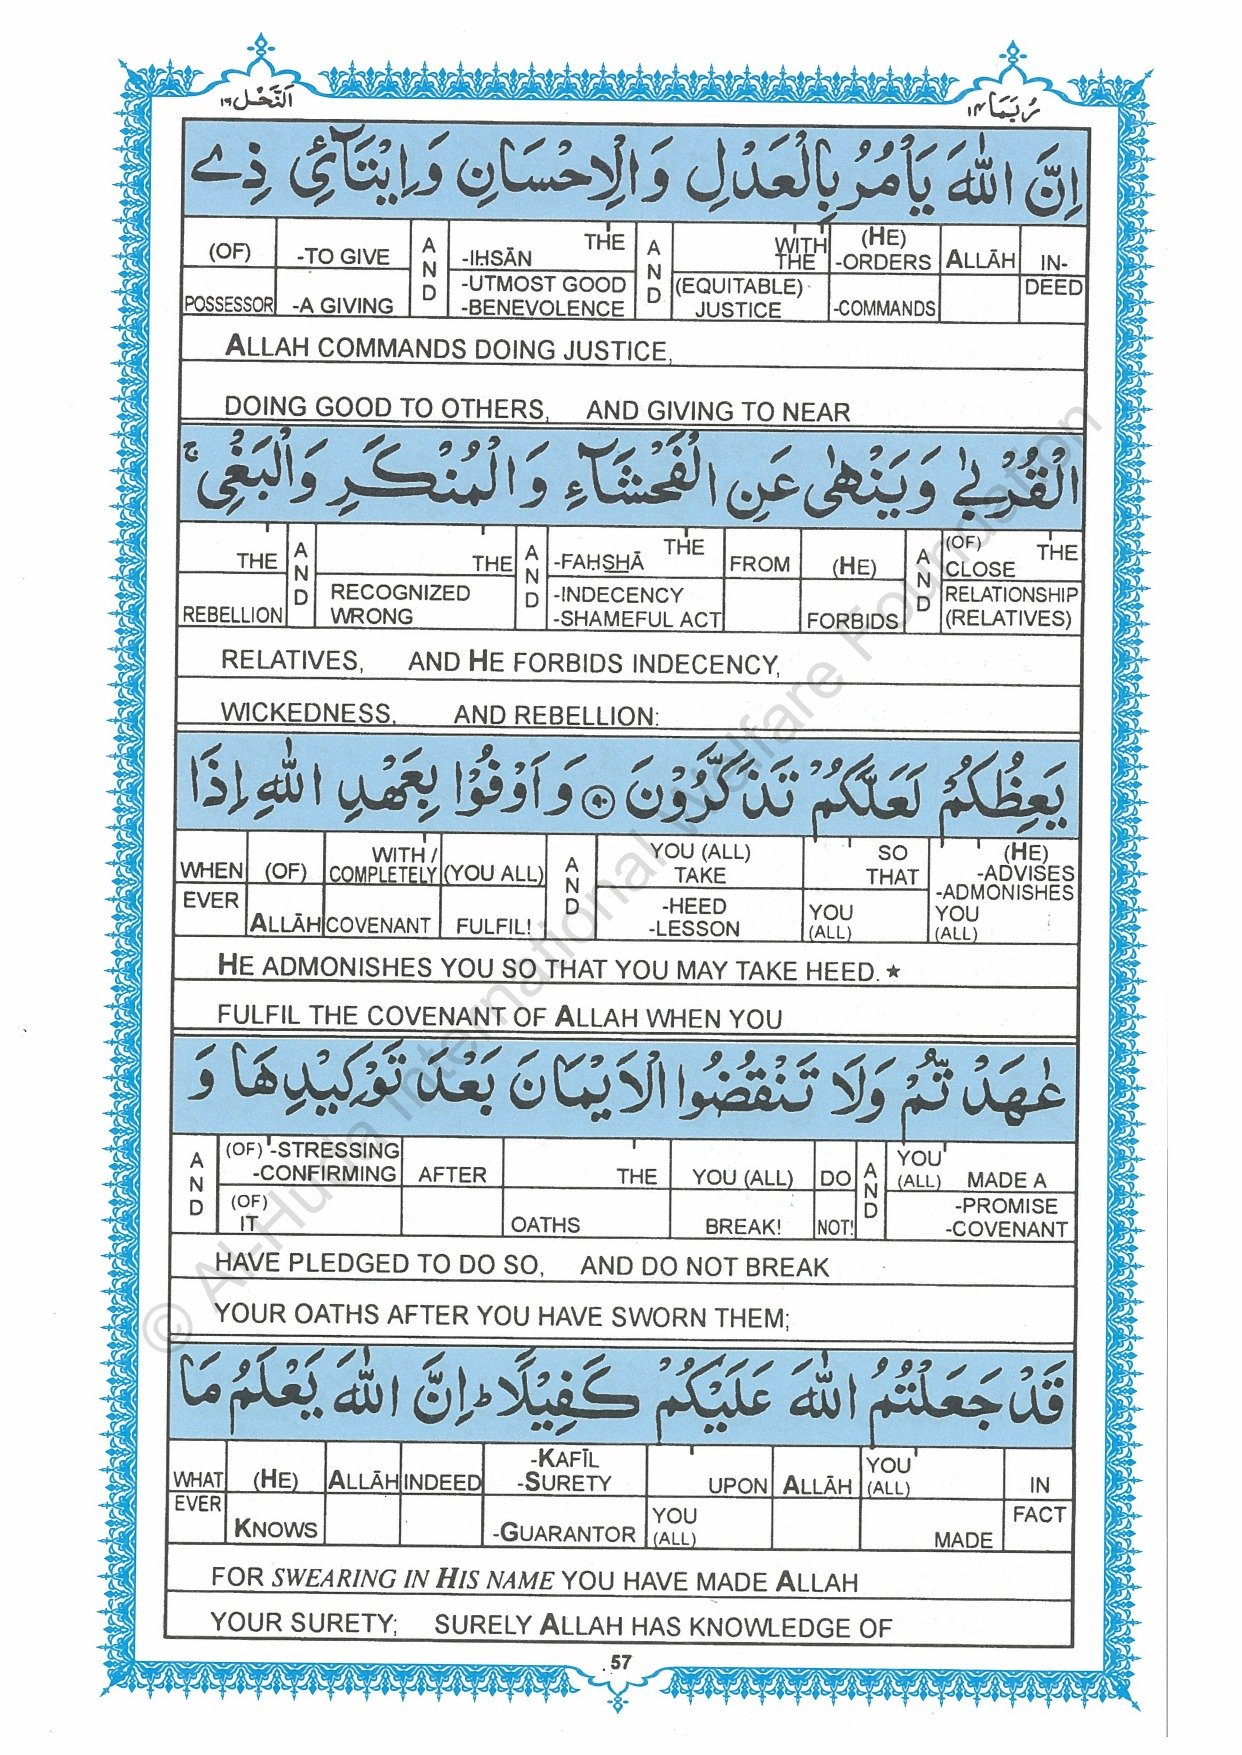 اَلنَّحْل ١٦
رُبَمَا ١٤
اِنَّ اللّٰهَ يَاْمُرُ بِالْعَدْلِ وَ الْاِحْسَانِ وَ اِيْتَآئِ ذِے
(OF) -TO GIVE AND -IHSĀN THE AND WITH THE (HE) -ORDERS ALLĀH IN-
POSSESSOR -A GIVING -UTMOST GOOD -BENEVOLENCE (EQUITABLE) JUSTICE -COMMANDS DEED
ALLAH COMMANDS DOING JUSTICE,
DOING GOOD TO OTHERS, AND GIVING TO NEAR
الْقُرْبٰى وَ يَنْهٰى عَنِ الْفَحْشَآءِ وَ الْمُنْكَرِ وَ الْبَغْىِ ۚ
THE AND THE AND -FAHSHĀ THE FROM (HE) AND (OF) CLOSE THE
REBELLION RECOGNIZED WRONG -INDECENCY -SHAMEFUL ACT FORBIDS RELATIONSHIP (RELATIVES)
RELATIVES, AND HE FORBIDS INDECENCY,
WICKEDNESS, AND REBELLION:
يَعِظُكُمْ لَعَلَّكُمْ تَذَكَّرُوْنَ ٩٠ وَ اَوْفُوْا بِعَهْدِ اللّٰهِ اِذَا
WHEN (OF) WITH / COMPLETELY (YOU ALL) AND YOU (ALL) TAKE SO THAT (HE) -ADVISES -ADMONISHES
EVER ALLĀH COVENANT FULFIL! -HEED -LESSON YOU (ALL) YOU (ALL)
HE ADMONISHES YOU SO THAT YOU MAY TAKE HEED. ★
FULFIL THE COVENANT OF ALLAH WHEN YOU
عٰهَدْتُّمْ وَ لَا تَنْقُضُوا الْاَيْمَانَ بَعْدَ تَوْكِيْدِهَا وَ
AND (OF) -STRESSING -CONFIRMING AFTER THE YOU (ALL) DO AND YOU (ALL) MADE A
(OF) IT OATHS BREAK! NOT! -PROMISE -COVENANT
HAVE PLEDGED TO DO SO, AND DO NOT BREAK
YOUR OATHS AFTER YOU HAVE SWORN THEM;
قَدْ جَعَلْتُمُ اللّٰهَ عَلَيْكُمْ كَفِيْلًا ؕ اِنَّ اللّٰهَ يَعْلَمُ مَا
WHAT (HE) ALLĀH INDEED -KAFĪL -SURETY UPON ALLĀH YOU (ALL) IN
EVER KNOWS -GUARANTOR YOU (ALL) MADE FACT
FOR SWEARING IN HIS NAME YOU HAVE MADE ALLAH
YOUR SURETY; SURELY ALLAH HAS KNOWLEDGE OF
57
© Al-Huda International Welfare Foundation